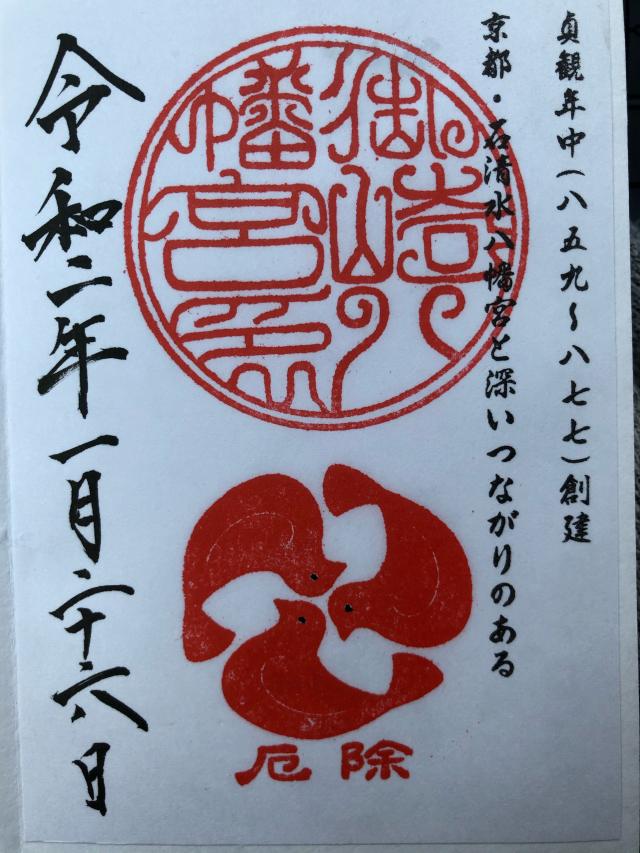 貞観年中(八五九～八七七)創建
京都・石清水八幡宮と深いつながりのある
御崎八
幡宮印
厄除
令和二年一月二十六日